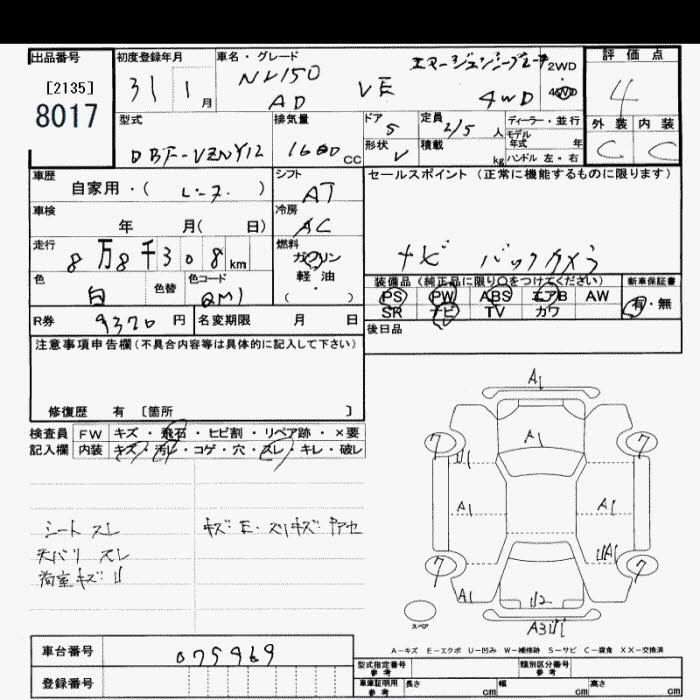 出品番号
[2135]
8017
初度登録年月
31 1月
車名・グレード
NV150
AD VE エマージェンシーブレーキ
4WD
2WD
4WD
評価点
4
外装 内装
C C
型式
DBF-VZNY12
排気量
1600cc
ドア
5
形状
V
定員
2/5人
積載
kg
ディーラー・並行
モデル年式 年
ハンドル 左・右
車歴
自家用・( )
シフト
AT
冷房
AC
燃料
ガソリン
軽・油
( )
車検
年 月( 日)
走行
8万8千308km
色
白
色替
色コード
QM1
R券 9370円
名変期限 月 日
セールスポイント (正常に機能するものに限ります)
ナビ バックカメラ
装備品 (純正品に限り○をつけてください)
PS PW ABS エアB AW
SR ナビ TV カワ
新車保証書
有・無
後日品
注意事項申告欄 (不具合内容等は具体的に記入して下さい)
修復歴 有 [箇所 ]
検査員記入欄
FW キズ・飛石・ヒビ割・リペア跡・×要
内装 キズ・汚レ・コゲ・穴・スレ・キレ・破レ
シート スレ
天バリ スレ
荷室キズ:U
キズ・E・スリキズ
A1
7 A1 7
U1
A1 A1
UA1
7 7
A1 U2
A3U1
スペア
A-キズ E-エクボ U-凹み W-補修跡 S-サビ C-腐食 XX-交換済
車台番号 075969
登録番号
型式指定番号 参考
類別区分番号 参考
車庫証明用 参考 長さ cm 幅 cm 高さ cm